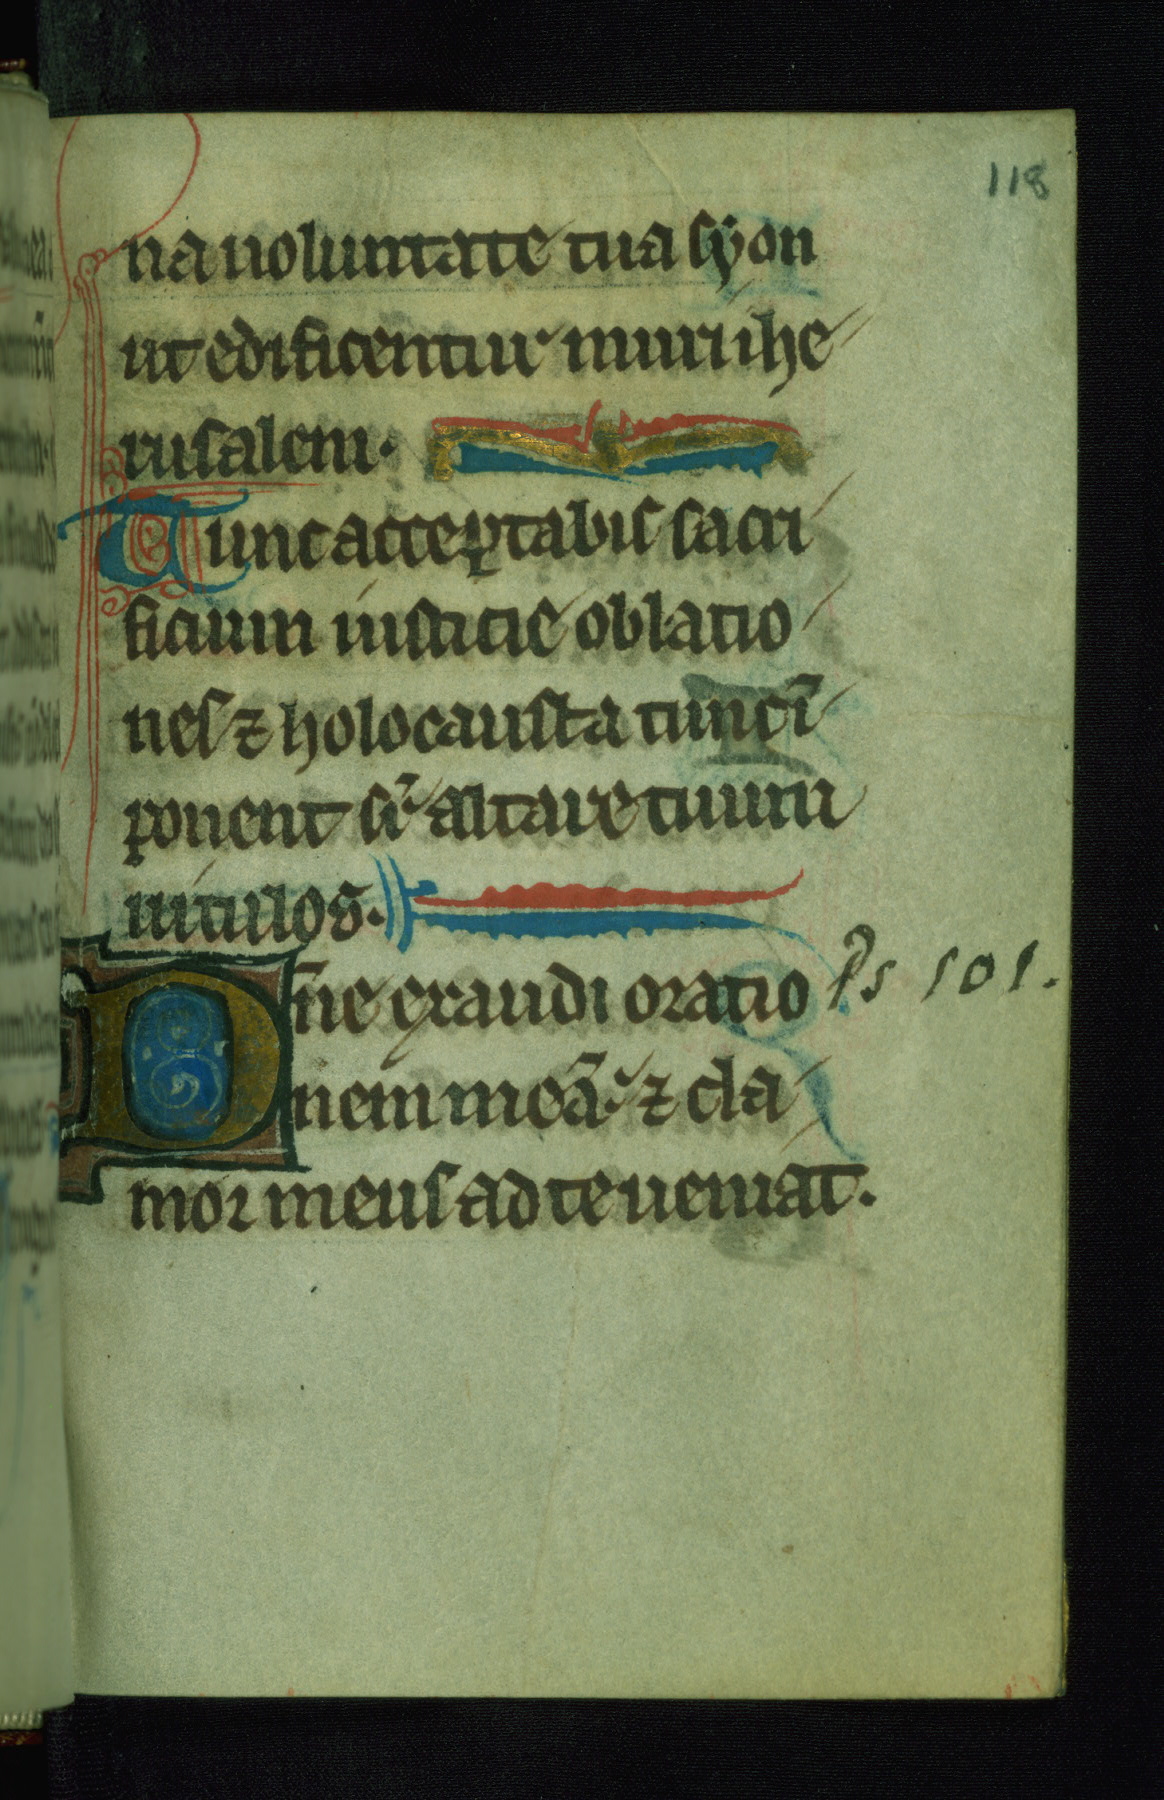 118
na uoluntate tua syon
ut edificentur muri ihe
rusalem.
Tunc acceptabis sacri
ficium iusticie oblatio
nes ⁊ holocausta tunc ī
ponent sr̄ altare tuum
uitulos.
Dn̄e exaudi oratio Ps 101.
nem meā. ⁊ cla
mor meus ad te ueniat.